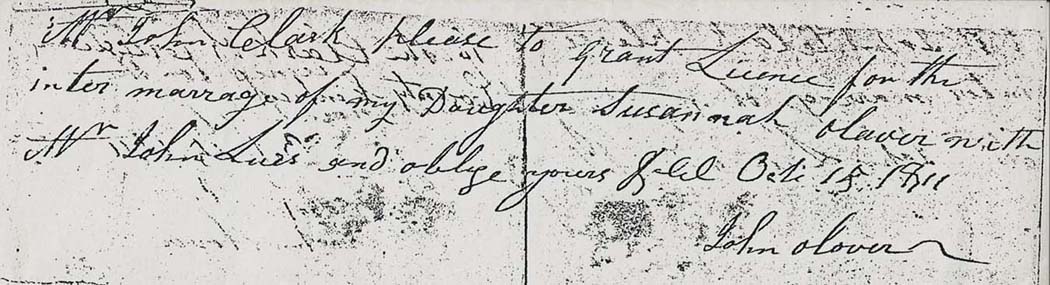 Mr John Clark please to grant Licence for the
inter marrage of my Daughter Susannah olaver with
Mr John and oblige yours &c Oct. 15 1811
John olover